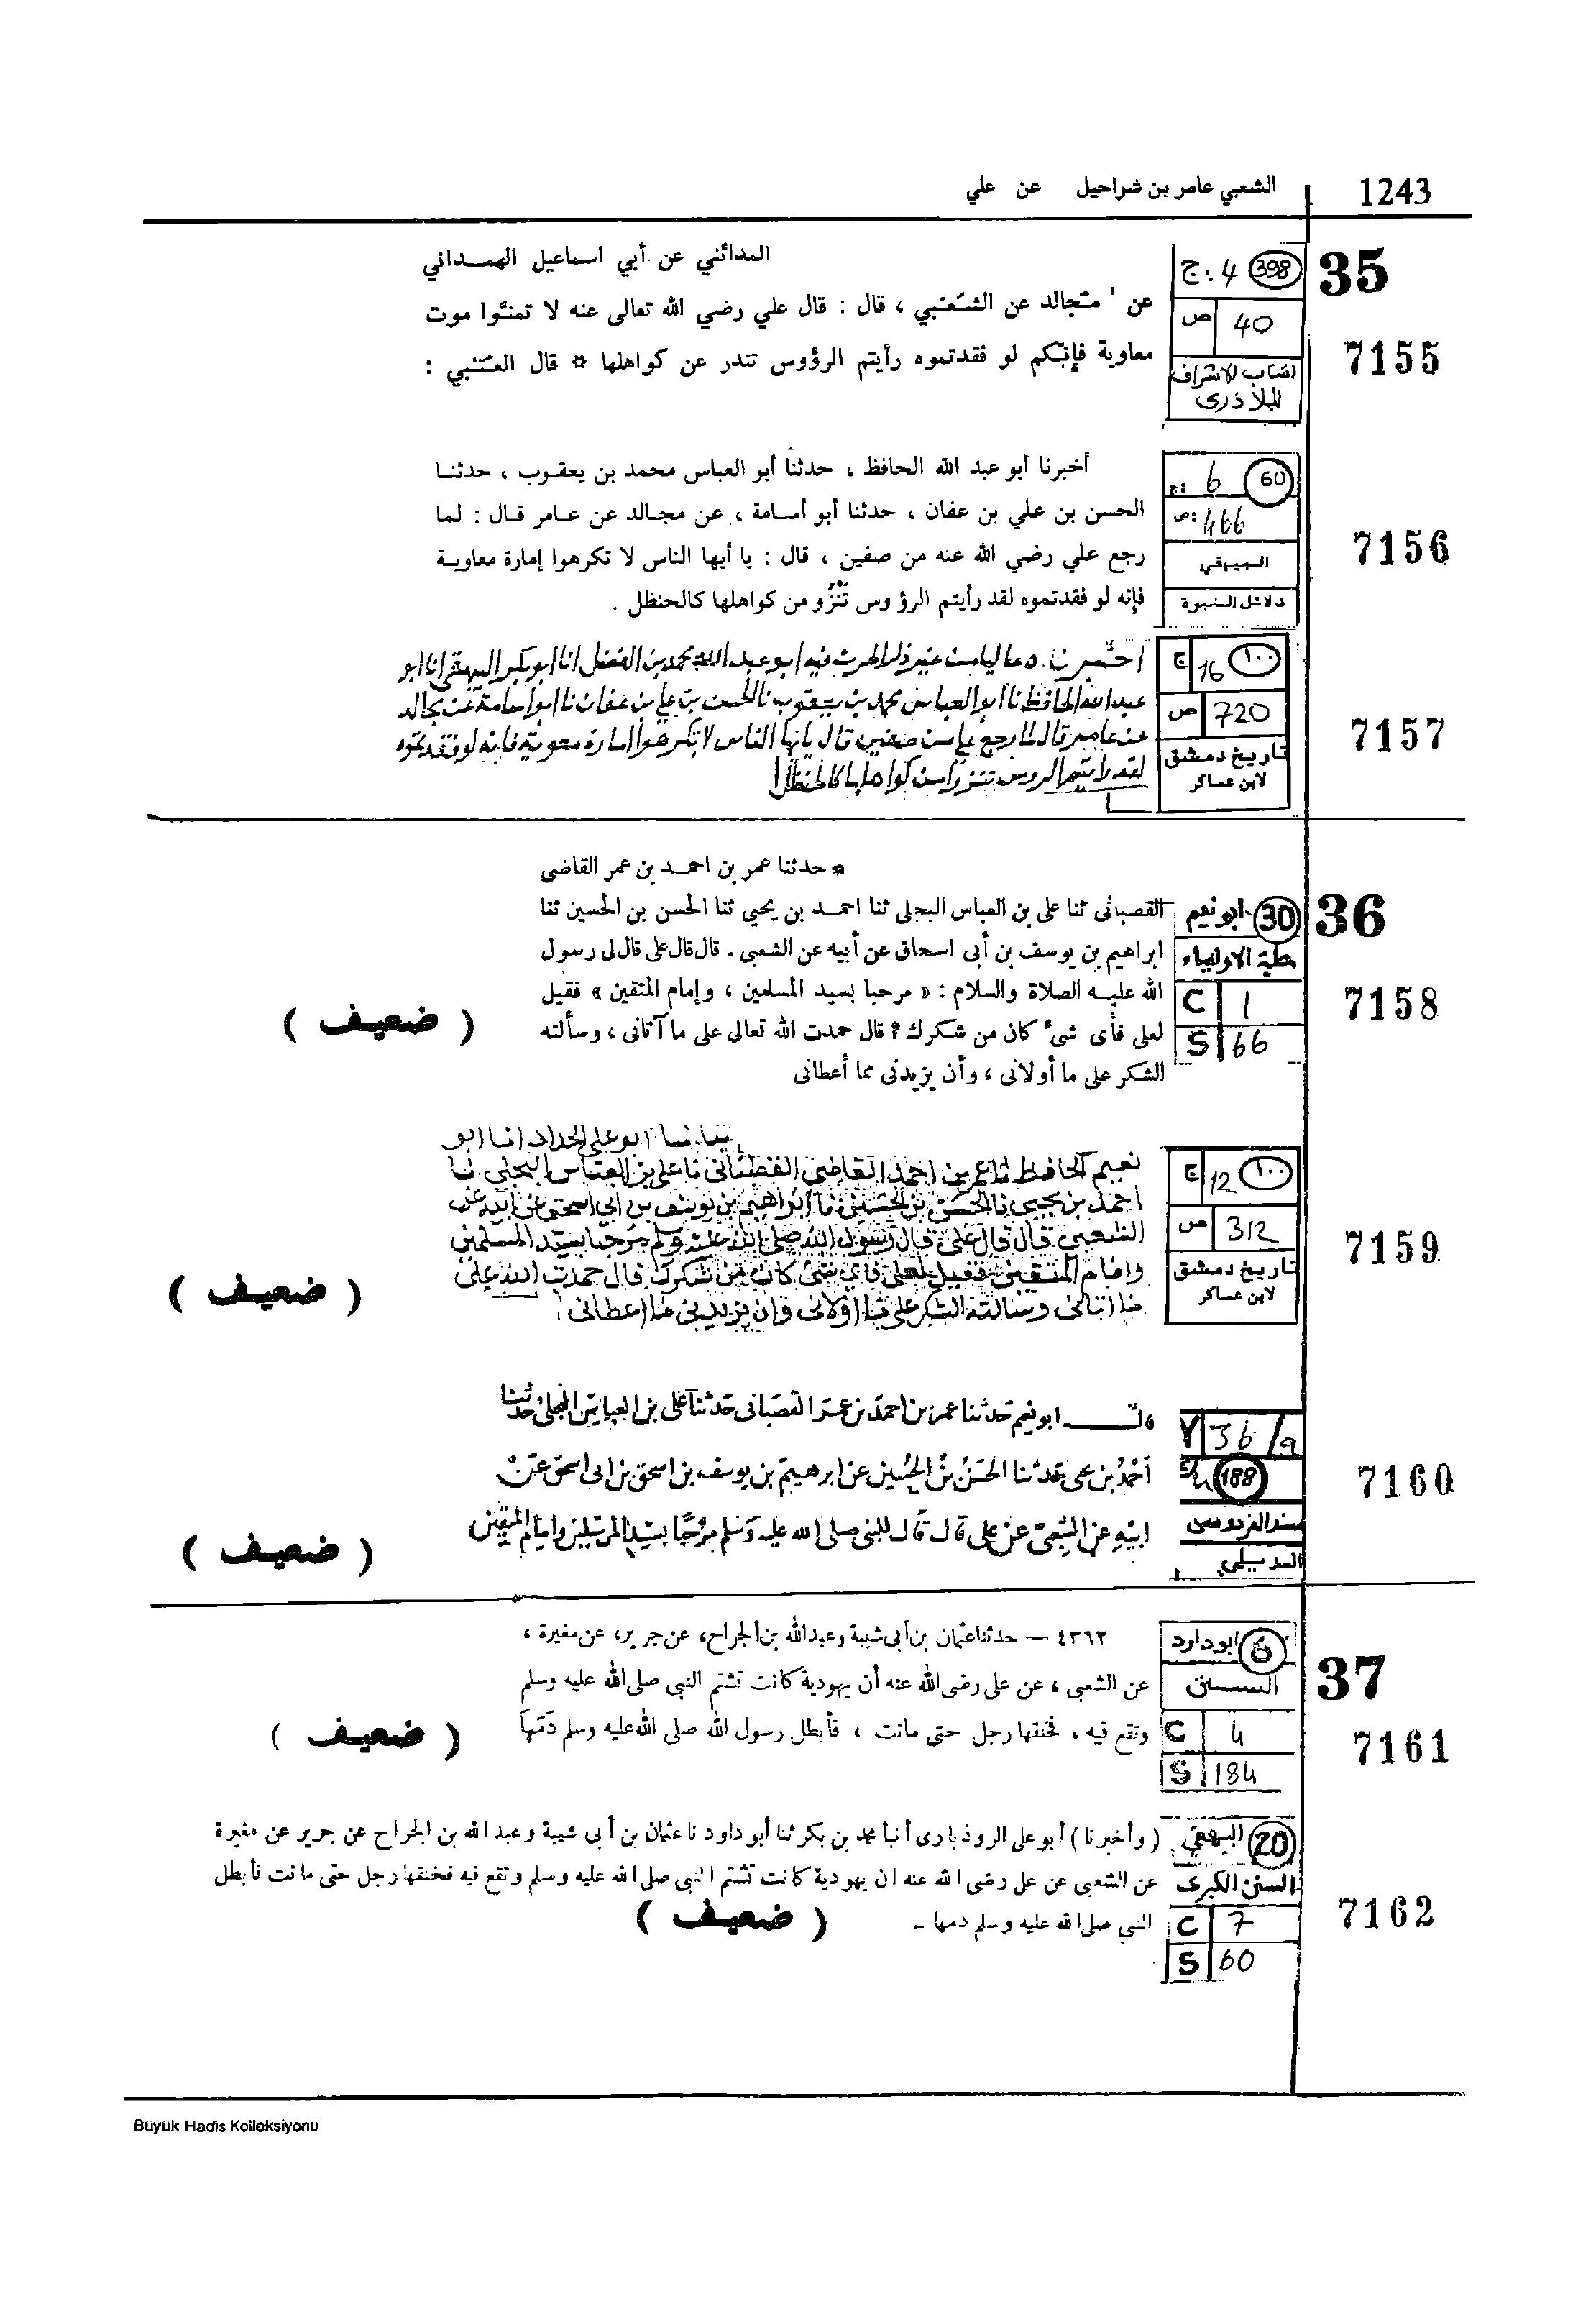 1243 الشعبي عامر بن شراحيل عن علي
35
7155
398 ج: 4
ص 40
انساب الاشراف
للبلاذرى
المدائني عن أبي اسماعيل الهمـداني
عن مجالد عن الشعبي ، قال : قال علي رضي الله تعالى عنه لا تمنّوا موت
معاوية فإنّكم لو فقدتموه رأيتم الرؤوس تندر عن كواهلها * قال العتبي :
7156
60 ج: 6
ص: 466
البيهقي
دلائل النبوة
أخبرنا أبو عبد الله الحافظ ، حدثنا أبو العباس محمد بن يعقوب ، حدثنا
الحسن بن علي بن عفان ، حدثنا أبو أسامة ، عن مجالد عن عامر قال : لما
رجع علي رضي الله عنه من صفين ، قال : يا أيها الناس لا تكرهوا إمارة معاوية
فإنه لو فقدتموه لقد رأيتم الرؤوس تَنْزُو من كواهلها كالحنظل .
7157
١٠٠ 16 ج
ص 720
تاريخ دمشق
لابن عساكر
ابو عبد الله محمد بن الفضل انا ابو بكر البيهقي انا ابو
عبد الله الحافظ نا ابو العباس محمد بن يعقوب نا الحسن بن علي بن عفان نا ابو اسامة عن مجالد
عن عامر قال لما رجع علي من صفين قال يا ايها الناس لا تكرهوا امارة معوية فانه لو فقدتموه
لقد رايتم الروس تنزوا من كواهلها كالحنظل
36
7158
30 ابو نعيم
حلية الاولياء
C 1
S 66
* حدثنا عمر بن احمـد بن عمر القاضى
القصبانى ثنا على بن العباس البجلى ثنا احمـد بن يحيى ثنا الحسن بن الحسين ثنا
ابراهيم بن يوسف بن أبى اسحاق عن أبيه عن الشعبى . قال قال على قال لى رسول
الله عليـه الصلاة والسلام : « مرحبا بسيد المسلمين ، وإمام المتقين » فقيل
لعلى فأى شىء كان من شكرك ? قال حمدت الله تعالى على ما آتانى ، وسألته
الشكر على ما أولانى ، وأن يزيدنى مما أعطانى
( ضعيف )
7159
١٠٠ 12 ج
ص 312
تاريخ دمشق
لابن عساكر
ابو علي الحداد انا ابو
نعيم الحافظ نا عمر بن احمد القاضي نا علي بن العباس البجلي نا
احمد بن يحيى نا الحسن بن الحسين نا ابراهيم بن يوسف بن ابي اسحق عن ابيه عن
الشعبي قال قال علي قال رسول الله صلى الله عليه وسلم مرحبا بسيد المسلمين
وامام المتقين فقيل لعلي فاي شي كان من شكرك قال حمدت الله على
ما اتاني وسالته الشكر على ما اولاني وان يزيدني مما اعطاني
( ضعيف )
7160
36/a
188
مسند الفردوسى
الديلمي
قال ابو نعيم حدثنا عمر بن احمد بن عمر القصبانى حدثنا على بن العباس البجلى حدثنا
أحمد بن يحيى حدثنا الحسن بن الحسين عن ابرهيم بن يوسف بن اسحق بن ابى اسحق عن
ابيه عن الشعبى عن على قال قال للنبى صلى الله عليه وسلم مرحبا بسيد المرسلين وامام المتقين
( ضعيف )
37
7161
6 ابو داود
السنن
C 4
S 184
٤٣٦٢ — حدثنا عثمان بن أبى شيبة وعبد الله بن الجراح، عن جرير، عن مغيرة ،
عن الشعبى ، عن على رضى الله عنه أن يهودية كانت تشتم النبى صلى الله عليه وسلم
وتقع فيه ، فخنقها رجل حتى ماتت ، فأبطل رسول الله صلى الله عليه وسلم دَمَهَا
( ضعيف )
7162
20 البيهقي
السنن الكبرى
C 7
S 60
( وأخبرنا ) أبو على الروذبارى أنبأ محمد بن بكر ثنا أبو داود نا عثمان بن أبى شيبة وعبد الله بن الجراح عن جرير عن مغيرة
عن الشعبى عن على رضى الله عنه ان يهودية كانت تشتم النبى صلى الله عليه وسلم وتقع فيه فخنقها رجل حتى ماتت فأبطل
النبي صلى الله عليه وسلم دمها -
( ضعيف )
Büyük Hadis Kolleksiyonu